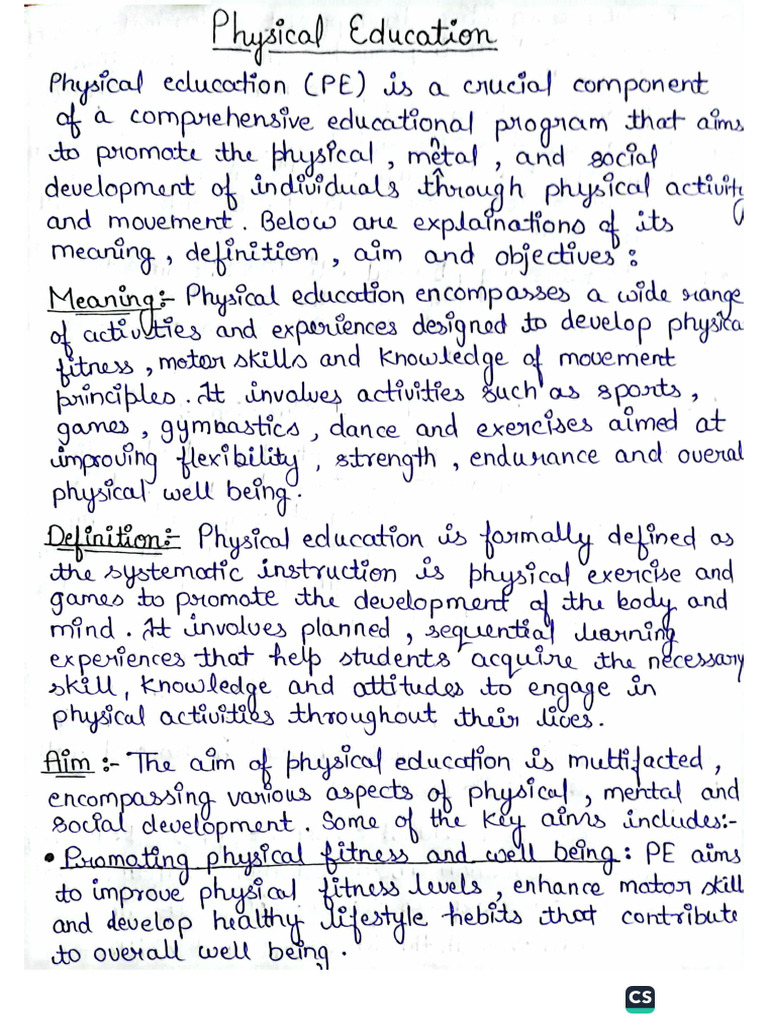 Physical Education
Physical education (PE) is a crucial component
of a comprehensive educational program that aims
to promote the physical, mental, and social
development of individuals through physical activity
and movement. Below are explainations of its
meaning, definition, aim and objectives:
Meaning:- Physical education encompasses a wide range
of activities and experiences designed to develop physica
fitness, motor skills and knowledge of movement
principles. It involves activities such as sports,
games, gymnastics, dance and exercises aimed at
improving flexibility, strength, endurance and overal
physical well being.
Definition:- Physical education is formally defined as
the systematic instruction is physical exercise and
games to promote the development of the body and
mind. It involves planned, sequential learning
experiences that help students acquire the necessary
skill, knowledge and attitudes to engage in
physical activities throughout their lives.
Aim:- The aim of physical education is multifacted,
encompassing various aspects of physical, mental and
social development. Some of the key aims includes:-
• Promoting physical fitness and well being: PE aims
to improve physical fitness levels, enhance motor skill
and develop healthy lifestyle hebits that contribute
to overall well being.
CS